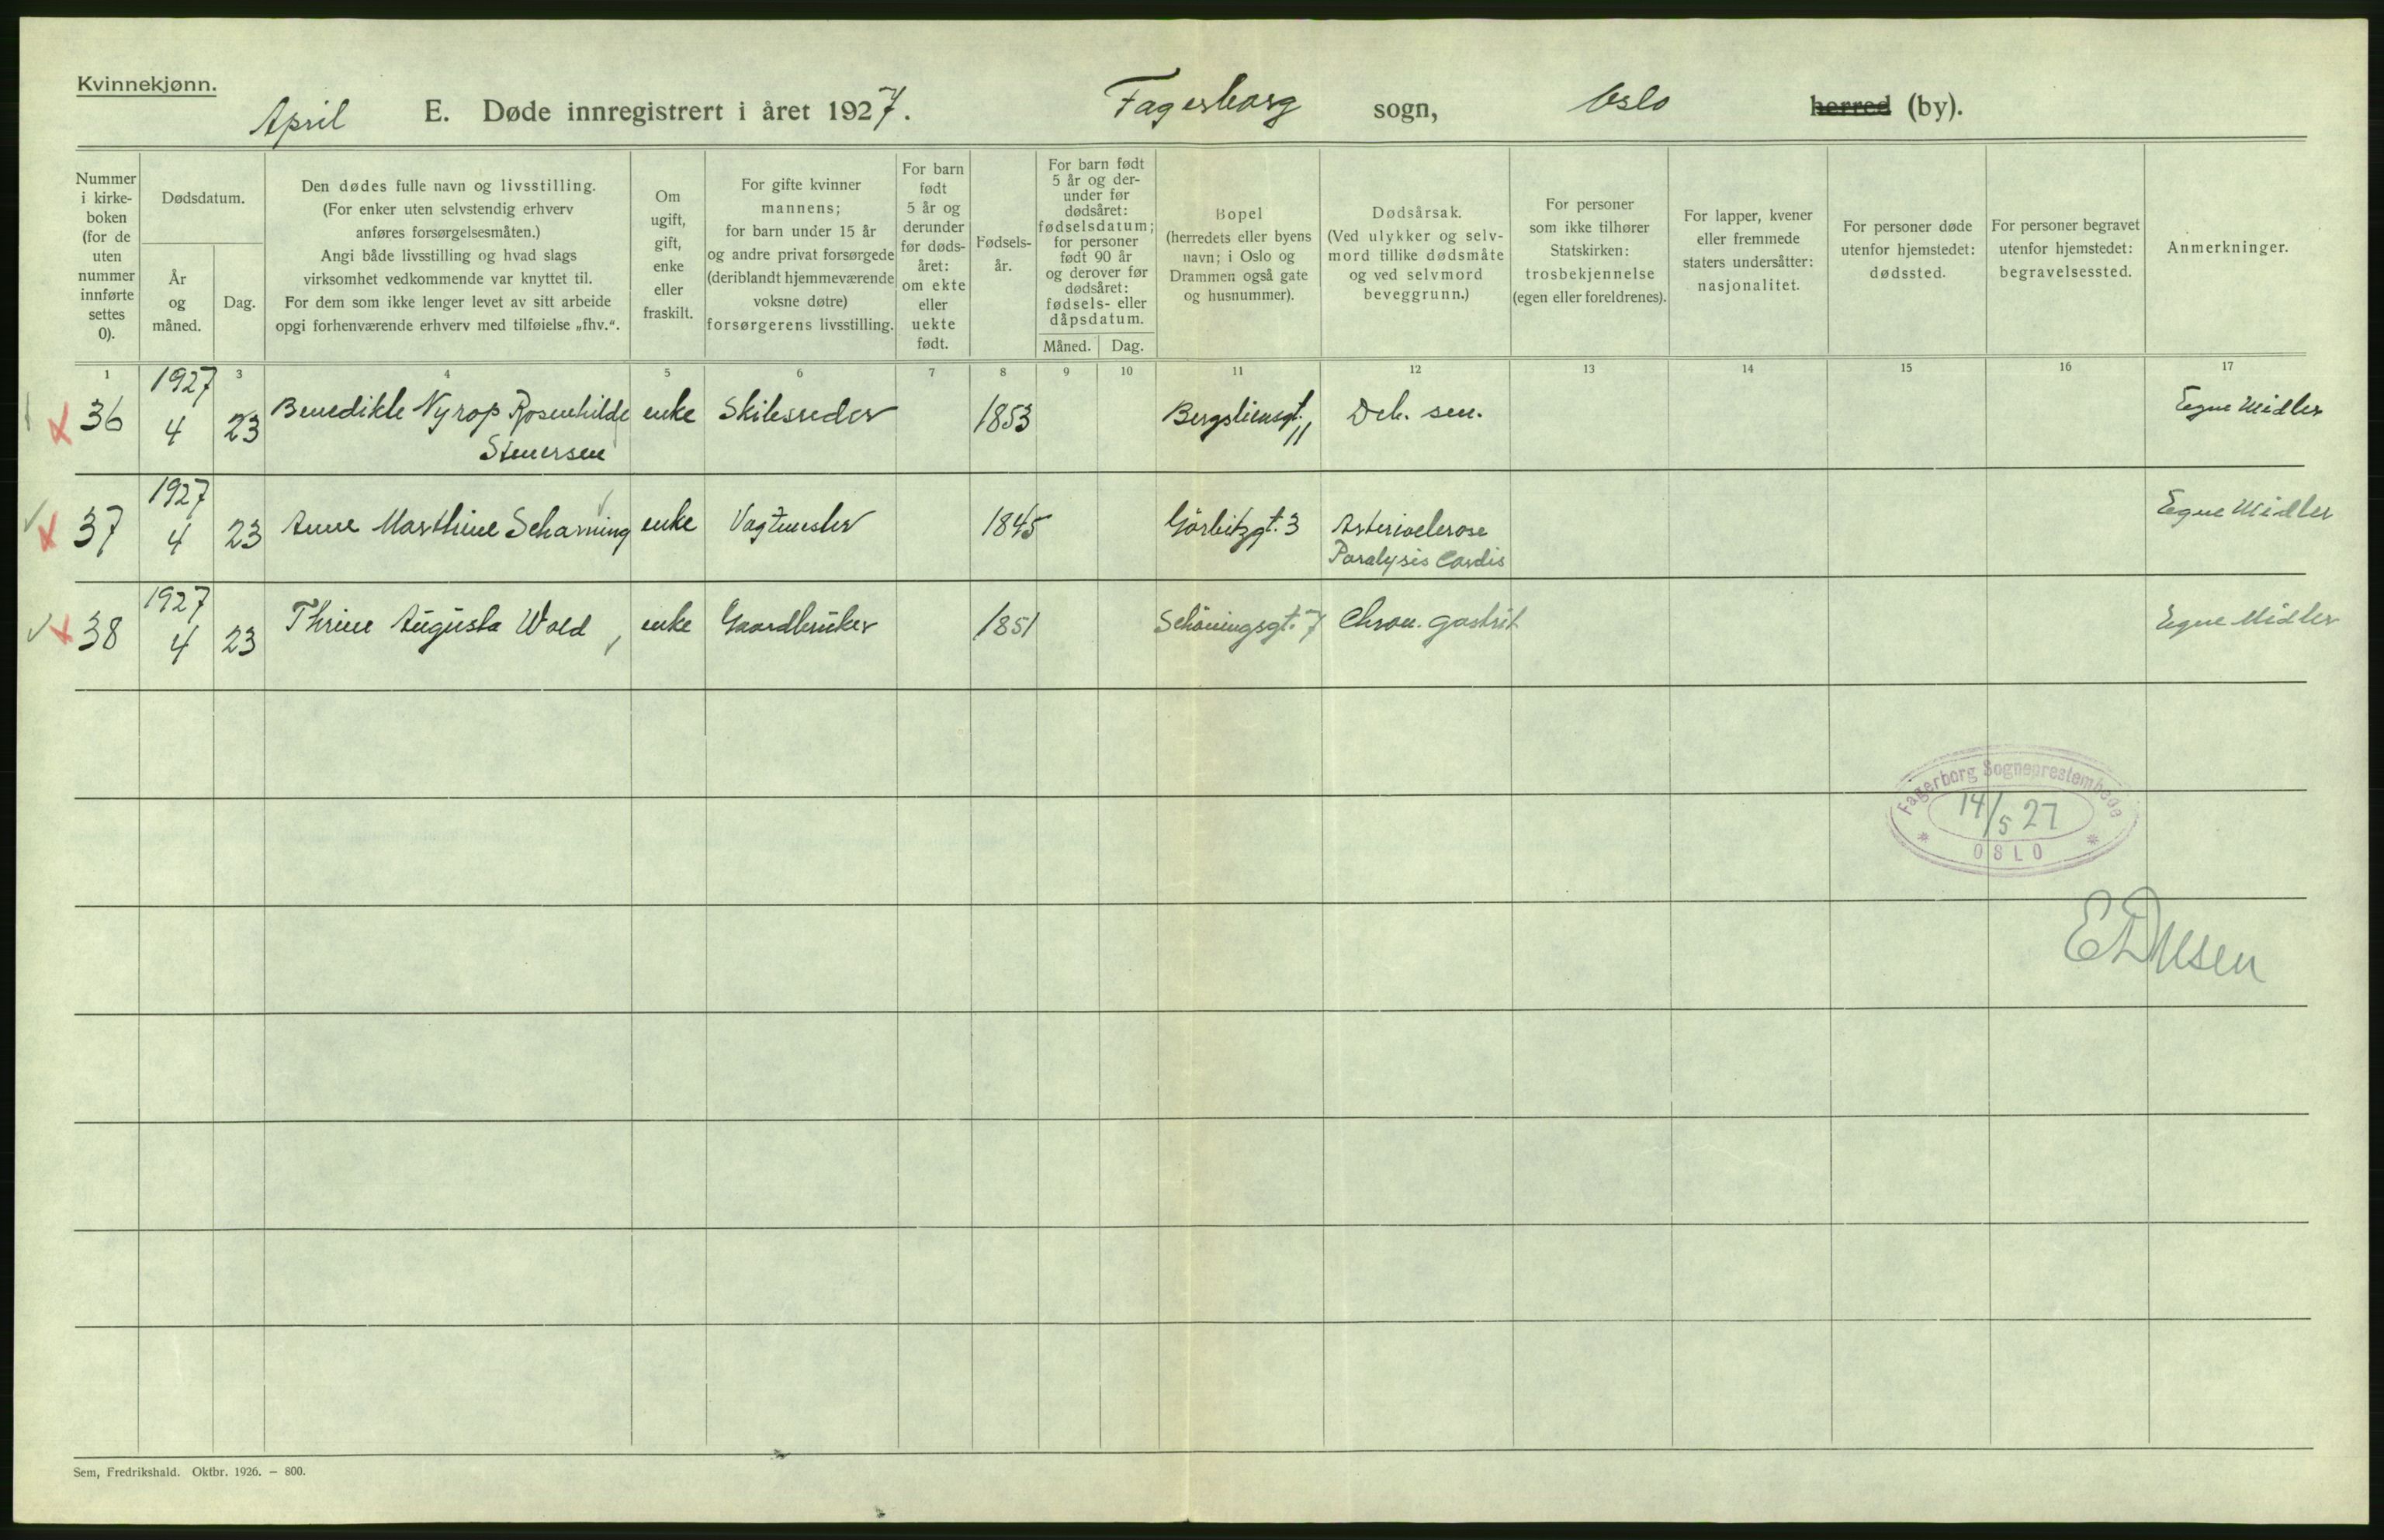 Kvinnekjønn.
April E. Døde innregistrert i året 1927. Fagerborg sogn, Oslo herred (by).
Nummer i kirke-boken (for de uten nummer innførte settes 0).
Dødsdatum.
År og måned.
Dag.
Den dødes fulle navn og livsstilling.
(For enker uten selvstendig erhverv
anføres forsørgelsesmåten.)
Angi både livsstilling og hvad slags
virksomhet vedkommende var knyttet til.
For dem som ikke lenger levet av sitt arbeide
opgi forhenværende erhverv med tilføielse „fhv.“.
Om
ugift,
gift,
enke
eller
fraskilt.
For gifte kvinner
mannens;
for barn under 15 år
og andre privat forsørgede
(deriblandt hjemmeværende
voksne døtre)
forsørgerens livsstilling.
For barn
født
5 år og
derunder
før døds-
året:
om ekte
eller
uekte
født.
Fødsels-
år.
For barn født
5 år og der-
under før
dødsåret:
fødselsdatum;
for personer
født 90 år
og derover før
dødsåret:
fødsels- eller
dåpsdatum.
Måned. Dag.
Bopel
(herredets eller byens
navn; i Oslo og
Drammen også gate
og husnummer).
Dødsårsak.
(Ved ulykker og selv-
mord tillike dødsmåte
og ved selvmord
beveggrunn.)
For personer
som ikke tilhører
Statskirken:
trosbekjennelse
(egen eller foreldrenes).
For lapper, kvener
eller fremmede
staters undersåtter:
nasjonalitet.
For personer døde
utenfor hjemstedet:
dødssted.
For personer begravet
utenfor hjemstedet:
begravelsessted.
Anmerkninger.
1 3 4 5 6 7 8 9 10 11 12 13 14 15 16 17
1927
36 4 23 Benedikte Nyrop Rosenhilde enke Skibsreder 1853 Bergsliensgt. 11 Deb. sen. Egne Midler
Stenersen
1927
37 4 23 Anne Marthine Scharning enke Vagtmester 1845 Görbitzgt. 3 Arterioclerose Egne Midler
Paralysis Cordis
1927
38 4 23 Thrine Augusta Wold, enke Gaardbruker 1851 Schöningsgt. 7 Chron. gastrit Egne Midler
Fagerborg Sogneprestembede
14/5 27
OSLO
Sem, Fredrikshald. Oktbr. 1926. – 800.